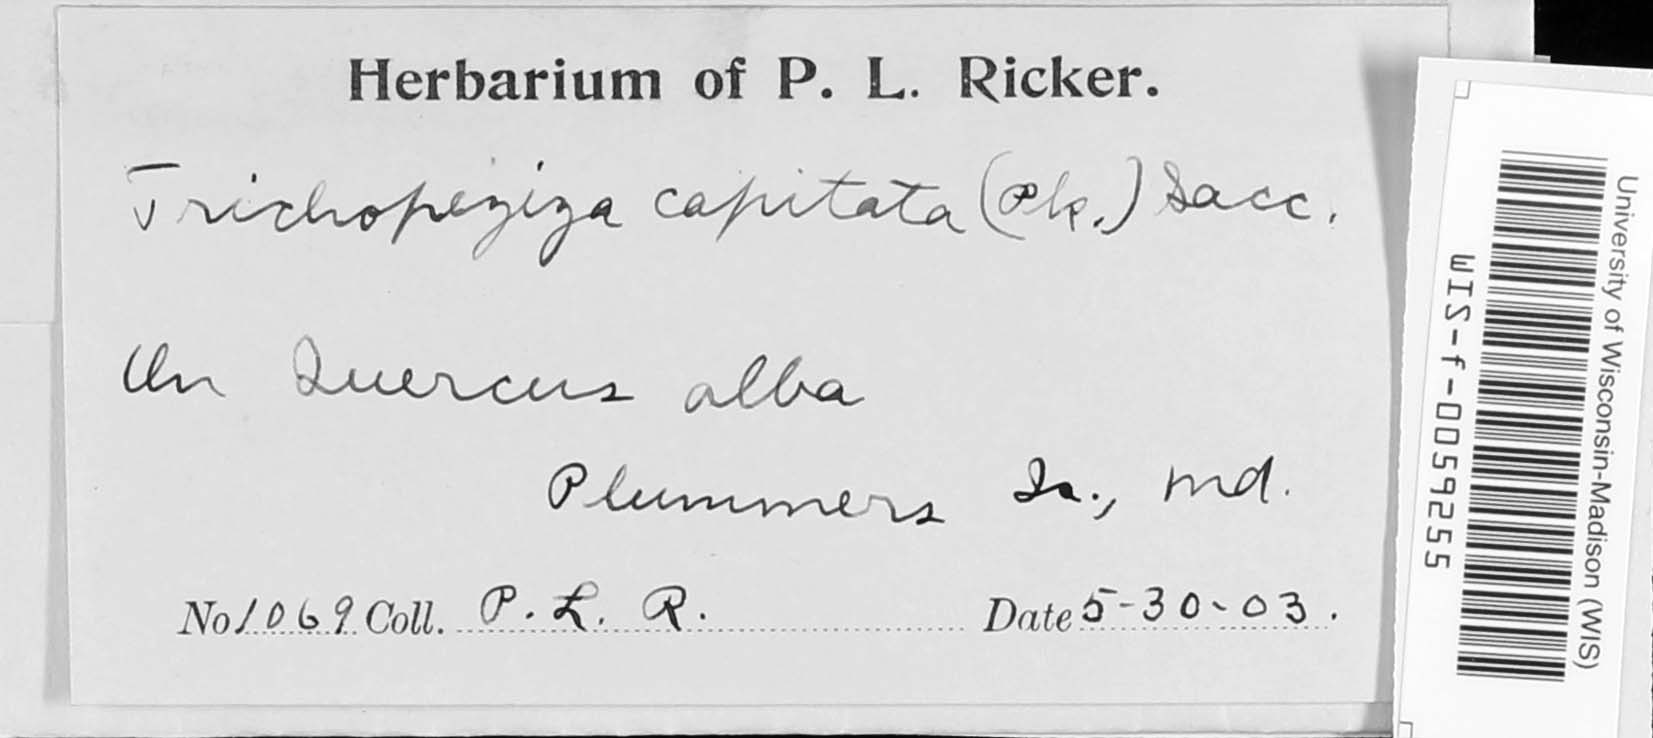 Herbarium of P. L. Ricker.
Trichopeziza capitata (Pk.) Sacc.
On Quercus alba
Plummers Is., Md.
No 1069 Coll. P. L. R. Date 5-30-03.
University of Wisconsin-Madison (WIS)
WIS-f-0059255